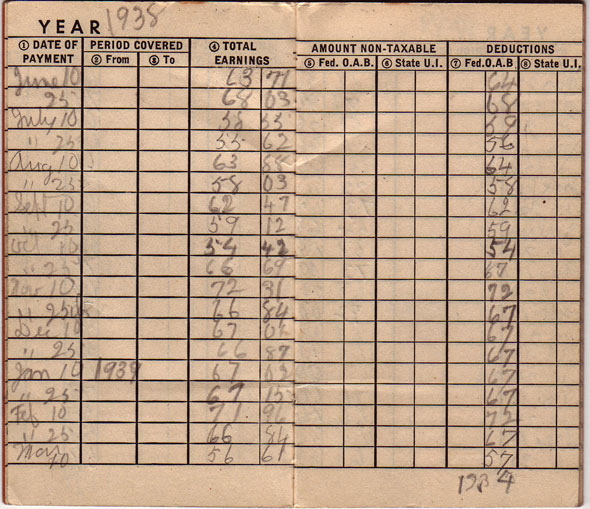 YEAR 1938
① DATE OF PAYMENT PERIOD COVERED ② From ③ To ④ TOTAL EARNINGS AMOUNT NON-TAXABLE ⑤ Fed. O.A.B. ⑥ State U.I. DEDUCTIONS ⑦ Fed. O.A.B ⑧ State U.I.
June 10 63 71 64
25 68 03 68
July 10 58 55 59
" 25 55 62 56
Aug 10 63 64
" 25 58 03 58
Sept 10 62 47 62
" 25 59 12 59
Oct 10 54 42 54
" 25 66 69 67
Nov 10 72 31 72
" 25 66 84 67
Dec 10 67 02 67
" 25 66 87 67
Jan 10 1939 67 02 67
" 25 67 15 67
Feb 10 71 96 72
" 25 66 84 67
Mar 10 56 61 57